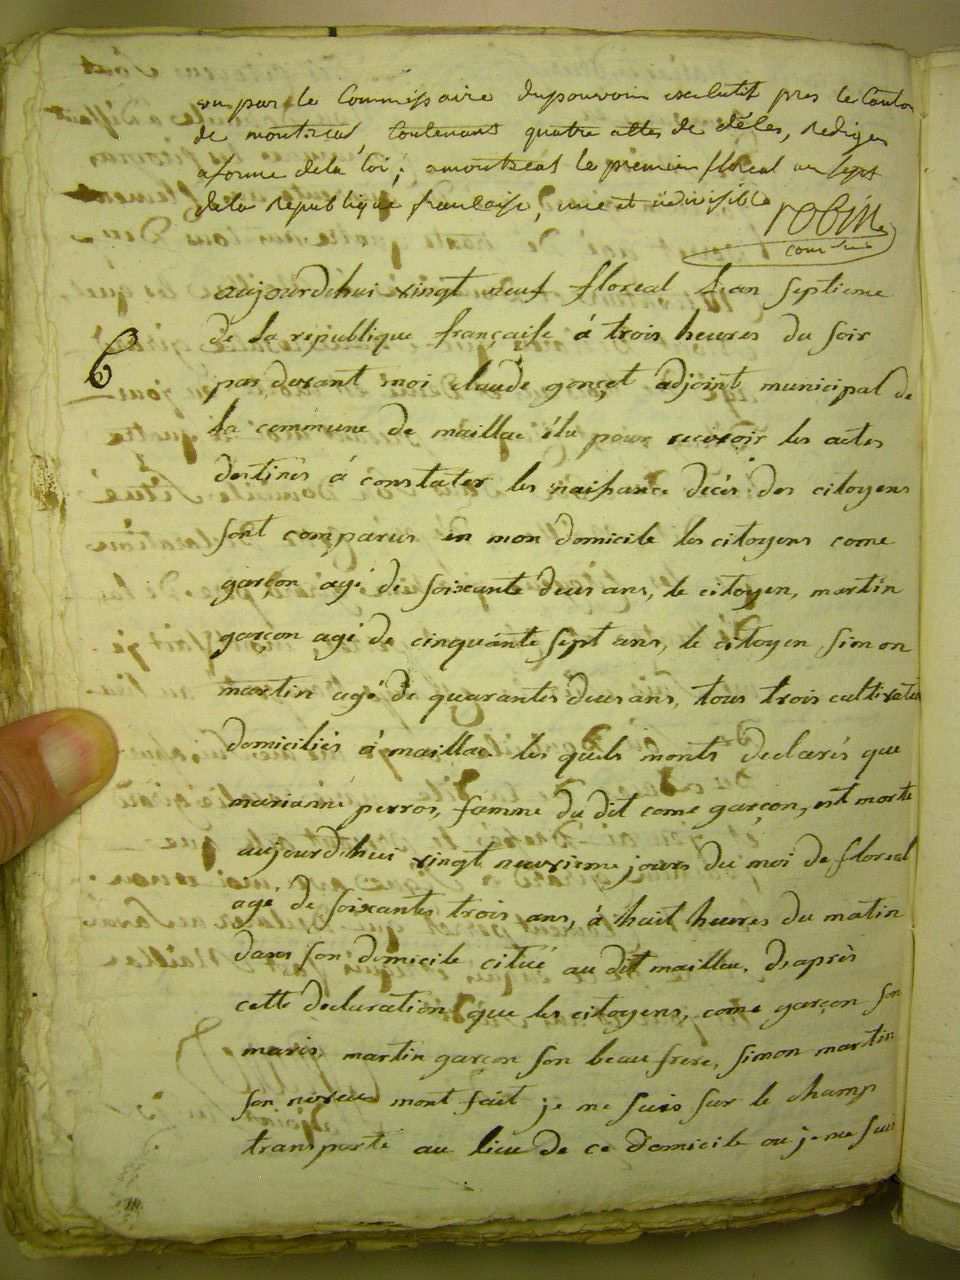 vu par le Commissaire dupouvoir executif pres le Canton
de montreal Contenant quatre attes de décès, rediges
a forme dela loi; a montreal le premier floreal an sept
dela republique francaise, une et indivisible
robin
aujourd'hui vingt neuf floreal l'an septieme
de la republique française á trois heures du soir
par devant moi claude gonçet adjoint municipal de
la commune de maillac élu pour recevoir les actes
destinés á constater les naissance décés des citoyens
sont comparus en mon domicile les citoyens come
garçon agé de soixante deus ans, le citoyen, martin
garçon agé de cinquante sept ans, le citoyen simon
martin agé de quarantes deus ans, tous trois cultivateu
domiciliés á maillac. les quels monts declarés que
marianne perros, famme du dit come garçon, est morte
aujourd'huis vingt neuvrieme jours du moi de floreal
agé de soixantes trois ans, á huit heures du matin
dans son domicile citué au dit maillac, daprès
cette declaration que les citoyens, come garçon son
maris, martin garçon son beau frere, simon martin
son neveu mont fait je me suis sur le champ
transporté au lieu de ce domicile ou je me suis